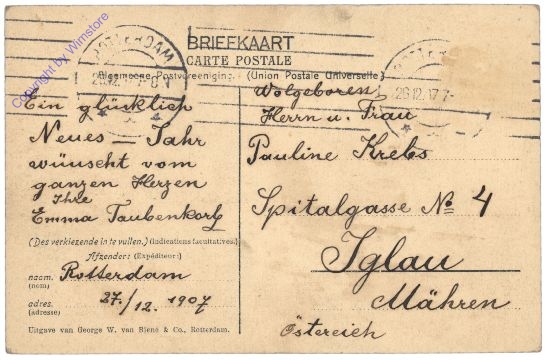 Copyright by Wimstore
ROTTERDAM
BRIEFKAART
CARTE POSTALE
Algemeene Postvereeniging. (Union Postale Universelle)
Ein glücklich
Neues – Jahr
wünscht vom
ganzen Herzen
Ihre
Emma Taubenkorb
(Des verkiezende in te vullen.) (Indications facultatives.)
Afzender: (Expéditeur:)
naam. Rotterdam
(nom)
adres. 27./12. 1907
(adresse)
Uitgave van George W. van Biené & Co., Rotterdam.
Wolgeboren
Herrn u. Frau
Pauline Krebs
Spitalgasse No 4
Iglau
Mähren
Östereich